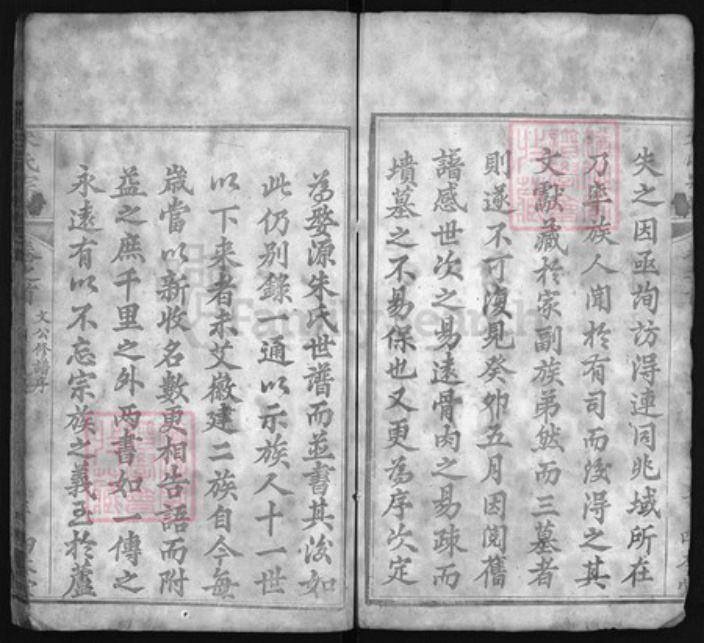 失之因亟詢訪得連同兆域所在
乃率族人聞於有司而後得之其
文獻藏於家副族弟然而三墓者
則遂不可復見癸卯五月因閱舊
譜感世次之易遠骨肉之易疎而
墳墓之不易保也又更為序次定
為婺源朱氏世譜而並書其後如
此仍別錄一通以示族人十一世
以下来者未艾徽建二族自今每
歲當以新收名數更相告語而附
益之庶千里之外兩書如一傳之
永遠有以不忘宗族之義至於蘆
文公修譜序
FamilySearch